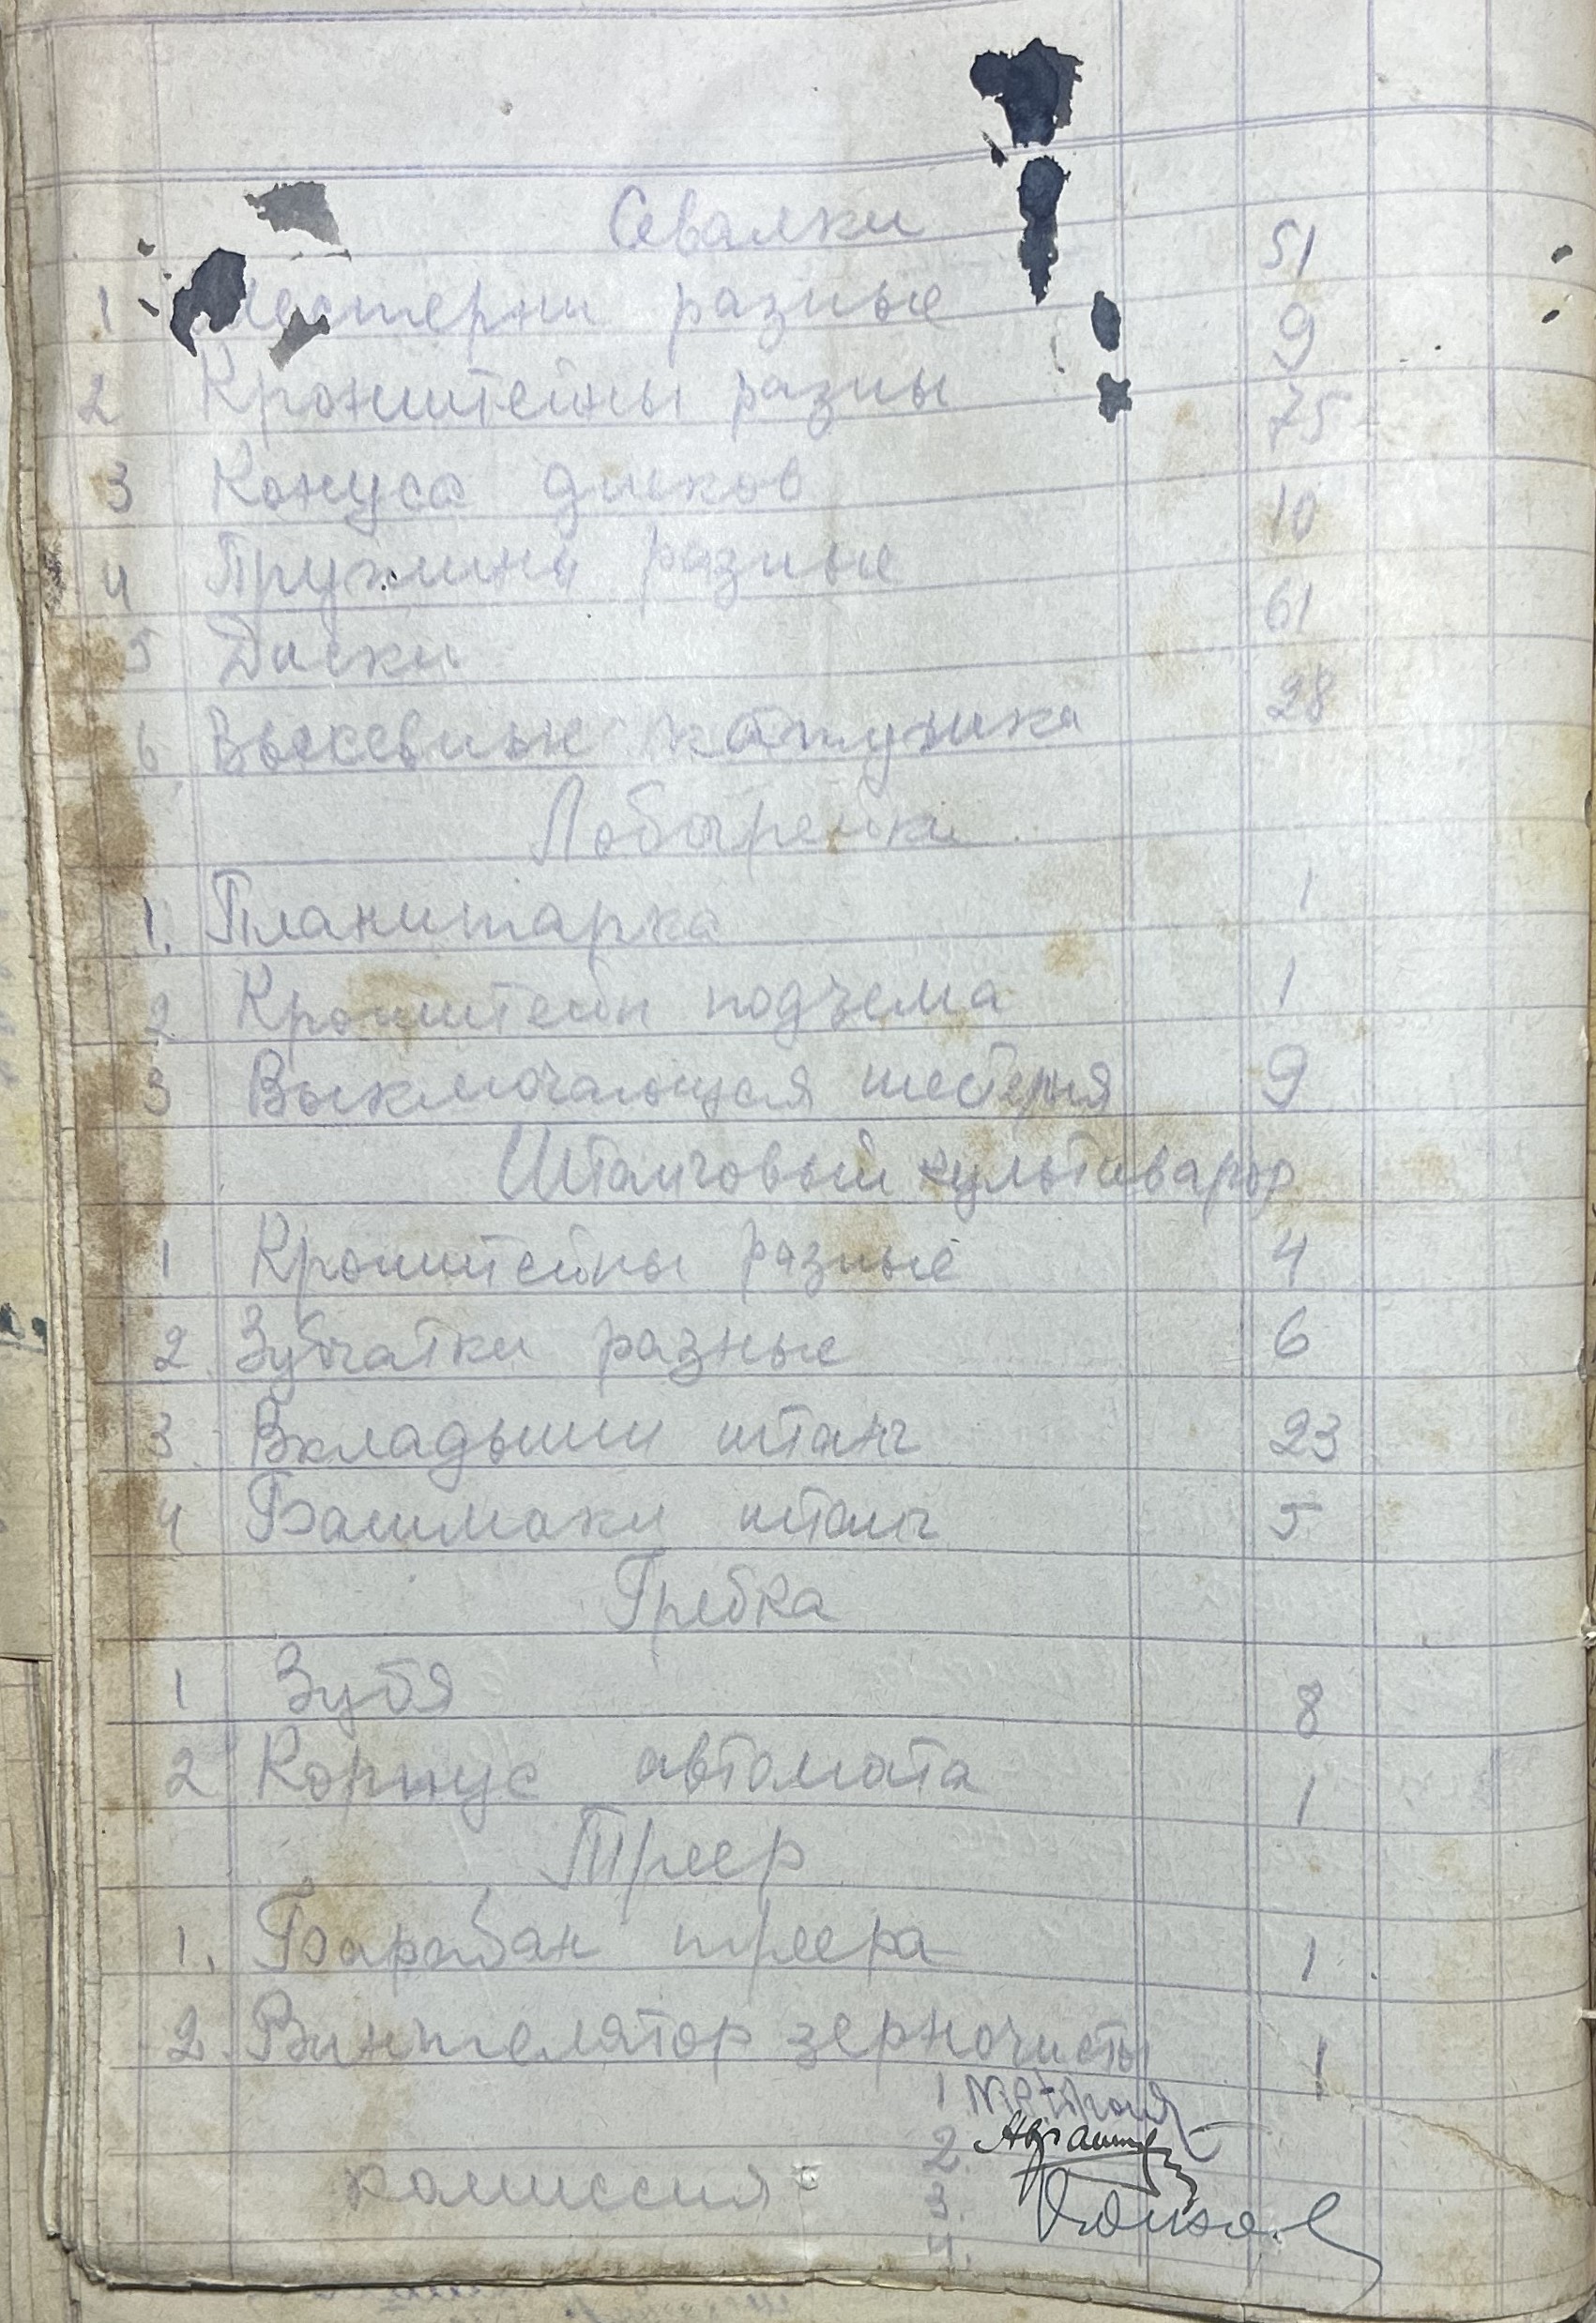 Сеялки
1 Шестерни разные 51
2 Кронштейны разны 9
3 Конуса дисков 75
4 Пружины разные 10
5 Диски 61
6 Высевные катушка 28
Лобогрейки
1. Планитарка 1
2 Кронштейн подъема 1
3 Выключающая шестерня 9
Штанговый культиватор
1 Кронштейны разные 4
2 Зубчатки разные 6
3 Вкладыши штанг 23
4 Башмаки штанг 5
Гребка
1 Зубя 8
2 Корпус автомата 1
Триер
1. Барабан триера 1
2. Винтелятор зерночисты 1
1
2.
комиссия 3.
4.